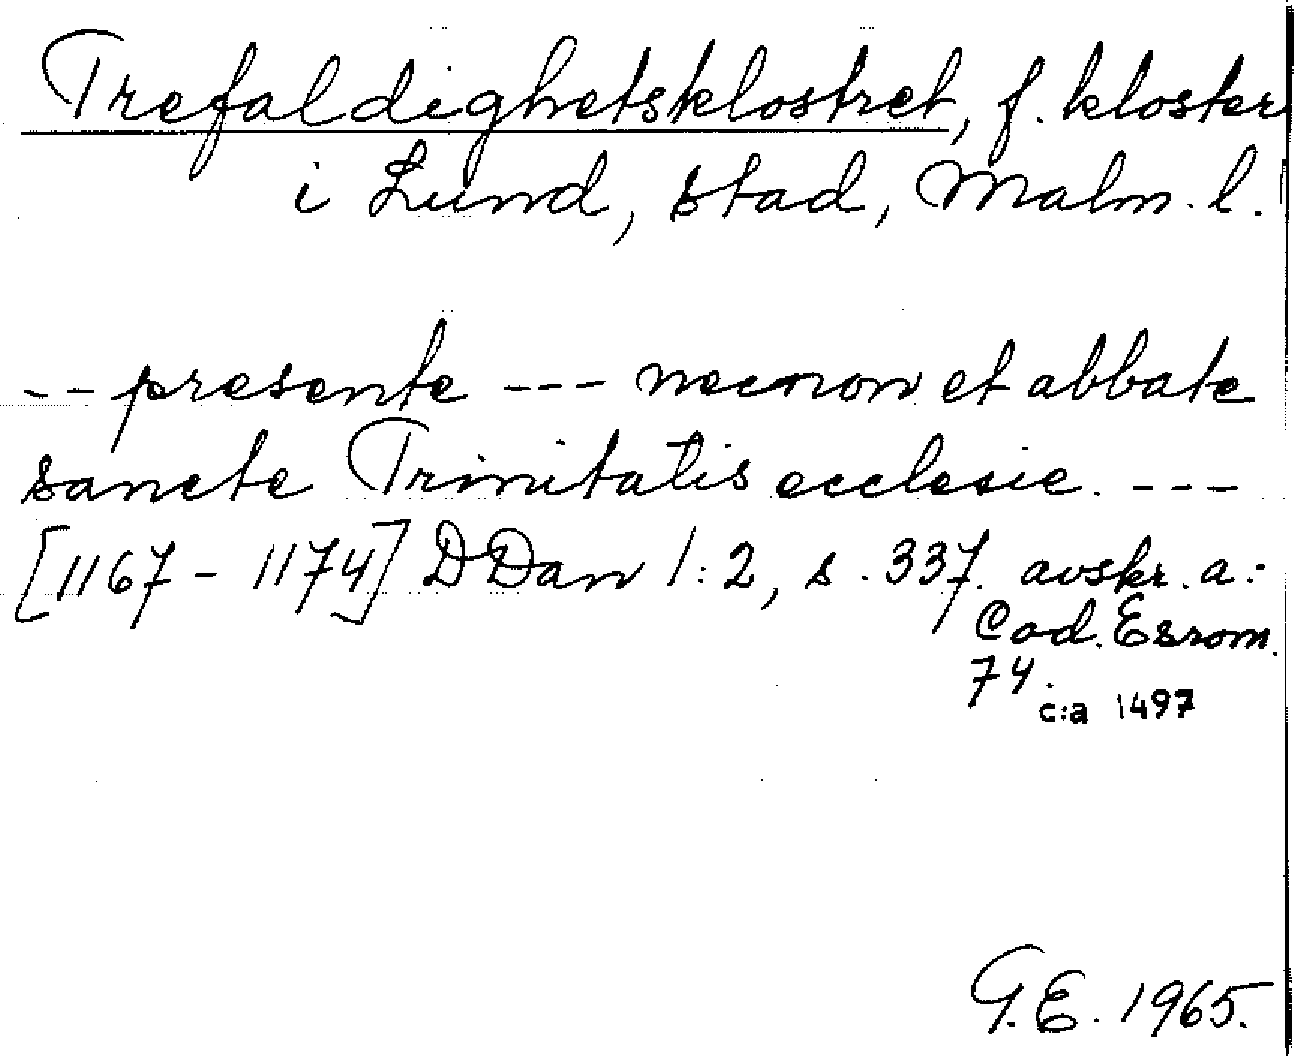 Trefaldighetsklostret, f. kloster
i Lund, stad, Malm. l.
-- presente --- necnon et abbate
sancte Trinitatis ecclesie. ---
[1167 - 1174] DDan 1:2, s. 337. avskr. a:
Cod. Esrom.
74.
c:a 1497
G.E. 1965.